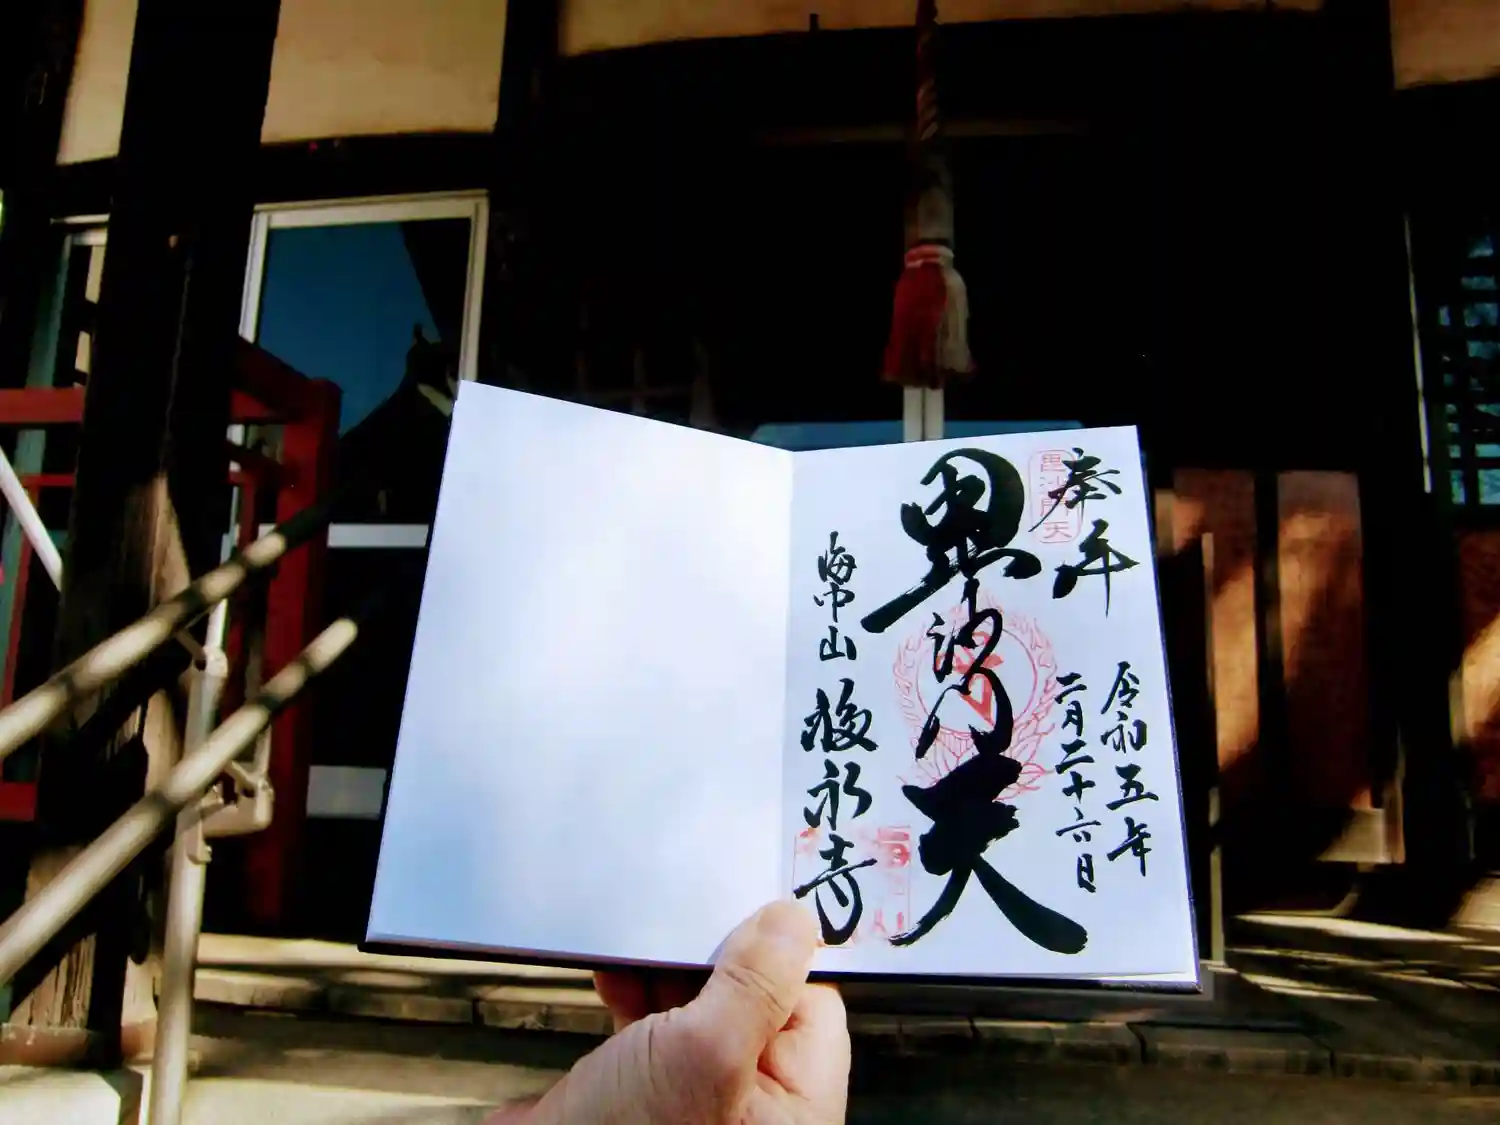 奉拝
令和五年
二月二十六日
毘沙門天
海中山
毘沙門天